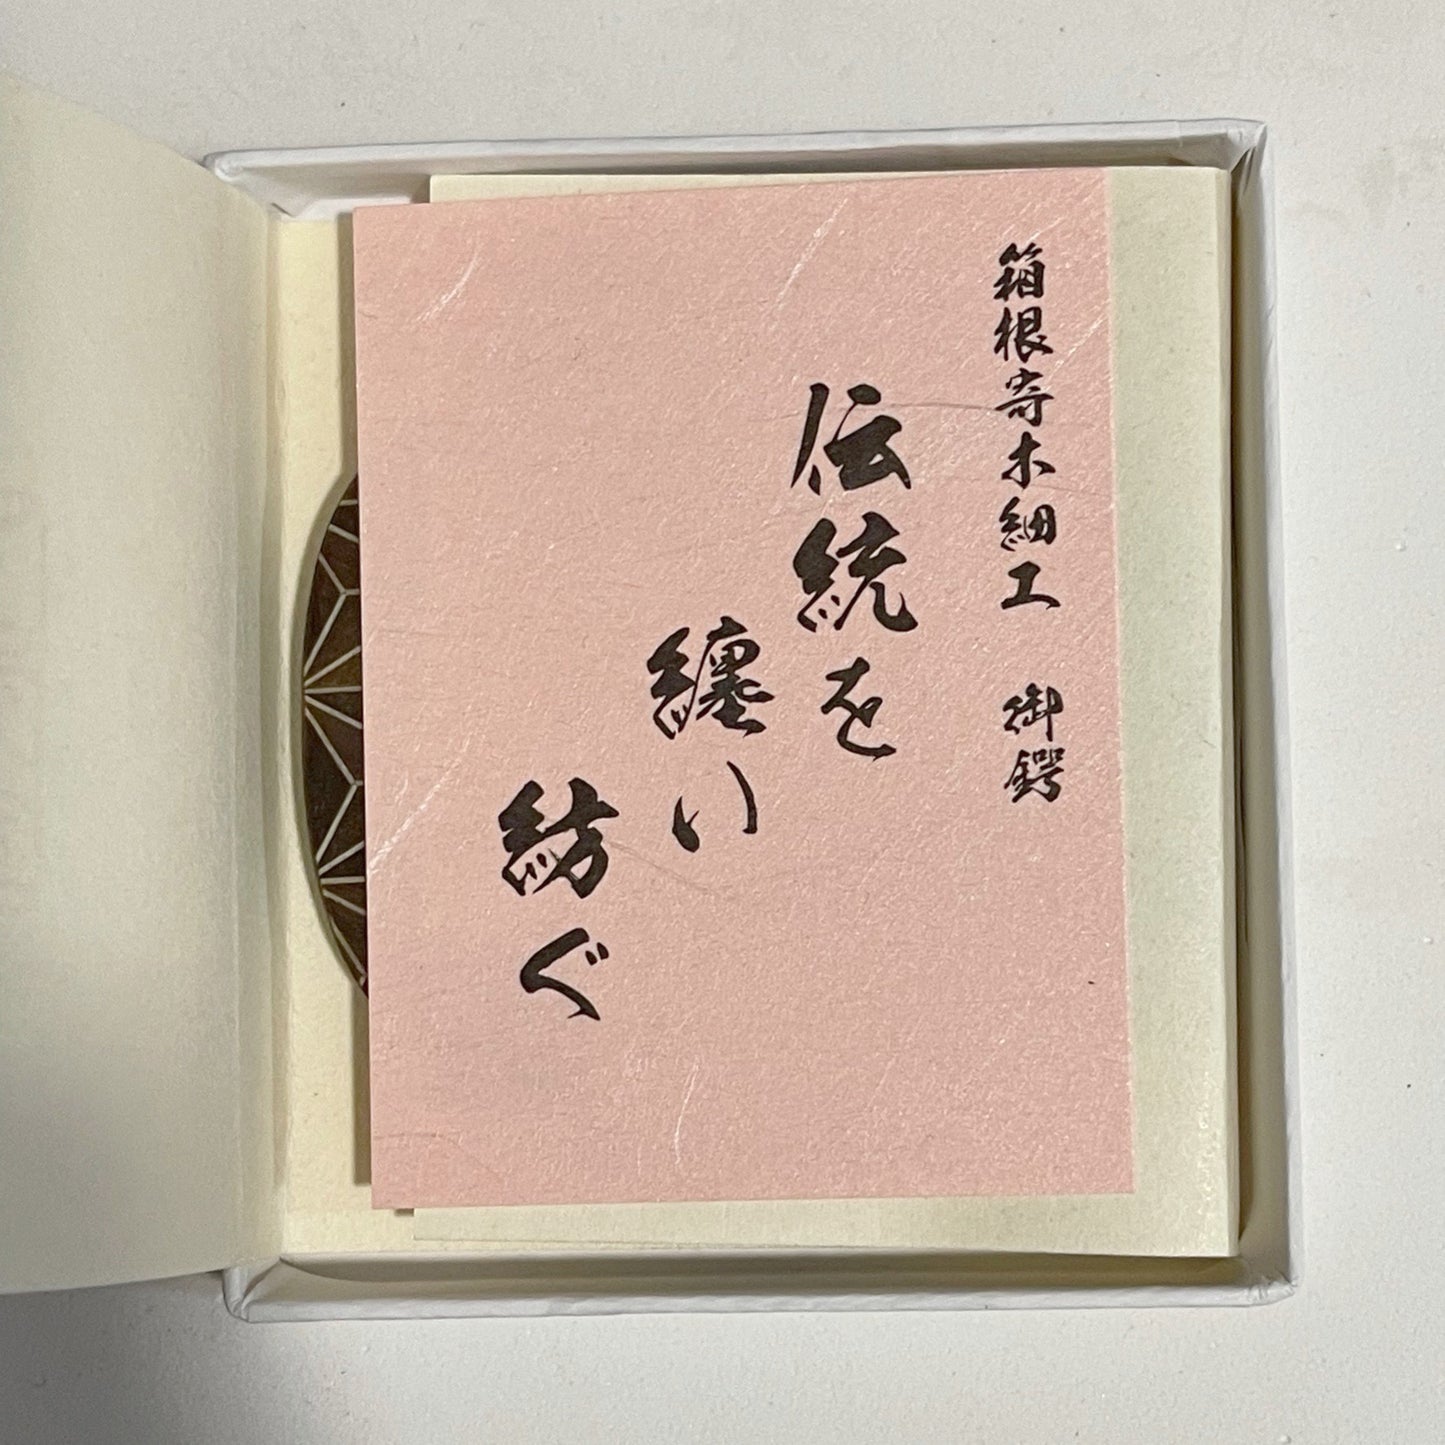 箱根寄木細工 御鍔
伝統を
纏い
紡ぐ